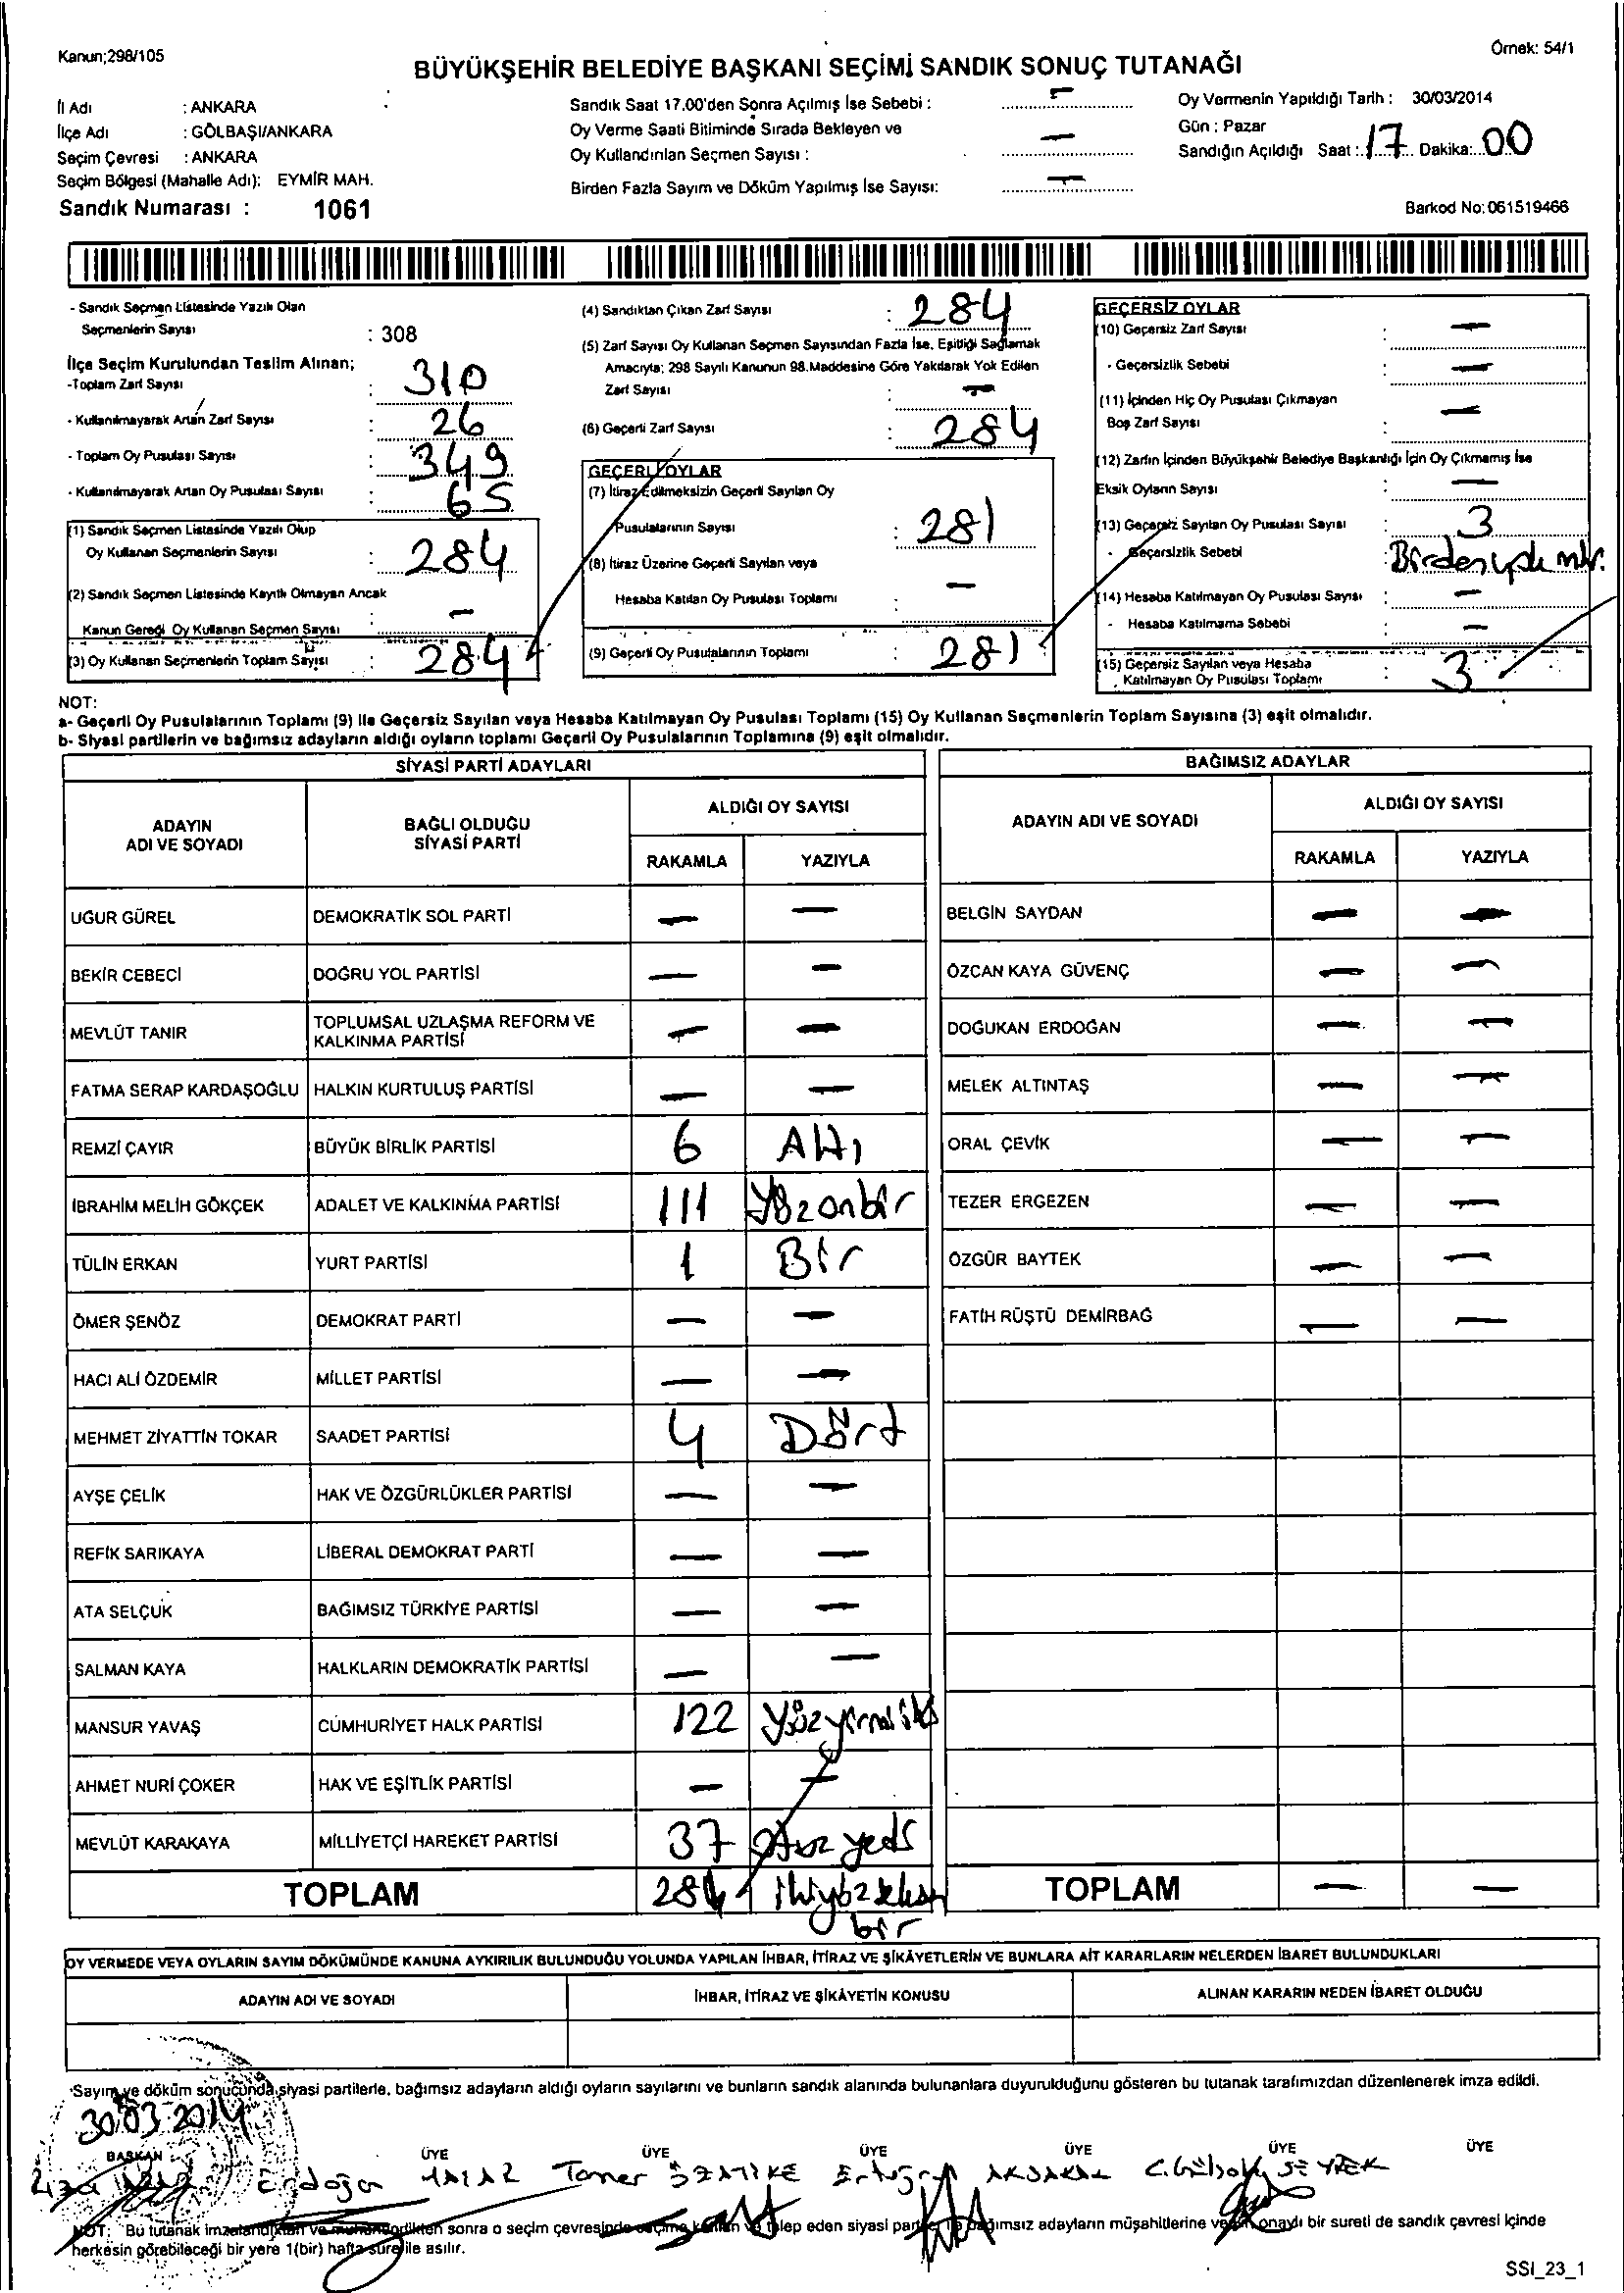 Kanun;298/105
Örnek: 54/1
BÜYÜKŞEHİR BELEDİYE BAŞKANI SEÇİMİ SANDIK SONUÇ TUTANAĞI
İl Adı : ANKARA
İlçe Adı : GÖLBAŞI/ANKARA
Seçim Çevresi : ANKARA
Seçim Bölgesi (Mahalle Adı): EYMİR MAH.
Sandık Numarası : 1061
Sandık Saat 17.00'den Sonra Açılmış İse Sebebi : –
Oy Verme Saati Bitiminde Sırada Bekleyen ve
Oy Kullandırılan Seçmen Sayısı : –
Birden Fazla Sayım ve Döküm Yapılmış İse Sayısı: –
Oy Vermenin Yapıldığı Tarih : 30/03/2014
Gün : Pazar
Sandığın Açıldığı Saat : 17 Dakika: 00
Barkod No: 061519466
- Sandık Seçmen Listesinde Yazılı Olan
Seçmenlerin Sayısı : 308
İlçe Seçim Kurulundan Teslim Alınan;
-Toplam Zarf Sayısı : 310
- Kullanılmayarak Artan Zarf Sayısı : 26
- Toplam Oy Pusulası Sayısı : 349
- Kullanılmayarak Artan Oy Pusulası Sayısı : 65
(1) Sandık Seçmen Listesinde Yazılı Olup
Oy Kullanan Seçmenlerin Sayısı : 284
(2) Sandık Seçmen Listesinde Kayıtlı Olmayan Ancak
Kanun Gereği Oy Kullanan Seçmen Sayısı : –
(3) Oy Kullanan Seçmenlerin Toplam Sayısı : 284
(4) Sandıktan Çıkan Zarf Sayısı : 284
(5) Zarf Sayısı Oy Kullanan Seçmen Sayısından Fazla İse, Eşitliği Sağlamak
Amacıyla; 298 Sayılı Kanunun 98.Maddesine Göre Yakılarak Yok Edilen
Zarf Sayısı : –
(6) Geçerli Zarf Sayısı : 284
GEÇERLİ OYLAR
(7) İtiraz Edilmeksizin Geçerli Sayılan Oy
Pusulalarının Sayısı : 281
(8) İtiraz Üzerine Geçerli Sayılan veya
Hesaba Katılan Oy Pusulası Toplamı : –
(9) Geçerli Oy Pusulalarının Toplamı : 281
GEÇERSİZ OYLAR
(10) Geçersiz Zarf Sayısı : –
- Geçersizlik Sebebi : –
(11) İçinden Hiç Oy Pusulası Çıkmayan
Boş Zarf Sayısı : –
(12) Zarfın İçinden Büyükşehir Belediye Başkanlığı İçin Oy Çıkmamış İse
Eksik Oyların Sayısı : –
(13) Geçersiz Sayılan Oy Pusulası Sayısı : 3
- Geçersizlik Sebebi : Birden
(14) Hesaba Katılmayan Oy Pusulası Sayısı : –
- Hesaba Katılmama Sebebi : –
(15) Geçersiz Sayılan veya Hesaba
Katılmayan Oy Pusulası Toplamı : 3
NOT:
a- Geçerli Oy Pusulalarının Toplamı (9) ile Geçersiz Sayılan veya Hesaba Katılmayan Oy Pusulası Toplamı (15) Oy Kullanan Seçmenlerin Toplam Sayısına (3) eşit olmalıdır.
b- Siyasi partilerin ve bağımsız adayların aldığı oyların toplamı Geçerli Oy Pusulalarının Toplamına (9) eşit olmalıdır.
SİYASİ PARTİ ADAYLARI
ADAYIN ADI VE SOYADI
BAĞLI OLDUĞU SİYASİ PARTİ
ALDIĞI OY SAYISI
RAKAMLA YAZIYLA
UĞUR GÜREL DEMOKRATİK SOL PARTİ – –
BEKİR CEBECİ DOĞRU YOL PARTİSİ – –
MEVLÜT TANIR TOPLUMSAL UZLAŞMA REFORM VE KALKINMA PARTİSİ – –
FATMA SERAP KARDAŞOĞLU HALKIN KURTULUŞ PARTİSİ – –
REMZİ ÇAYIR BÜYÜK BİRLİK PARTİSİ 6 Altı
İBRAHİM MELİH GÖKÇEK ADALET VE KALKINMA PARTİSİ 111 Yüzonbir
TÜLİN ERKAN YURT PARTİSİ 1 Bir
ÖMER ŞENÖZ DEMOKRAT PARTİ – –
HACI ALİ ÖZDEMİR MİLLET PARTİSİ – –
MEHMET ZİYATTİN TOKAR SAADET PARTİSİ 4 Dört
AYŞE ÇELİK HAK VE ÖZGÜRLÜKLER PARTİSİ – –
REFİK SARIKAYA LİBERAL DEMOKRAT PARTİ – –
ATA SELÇUK BAĞIMSIZ TÜRKİYE PARTİSİ – –
SALMAN KAYA HALKLARIN DEMOKRATİK PARTİSİ – –
MANSUR YAVAŞ CUMHURİYET HALK PARTİSİ 122 Yüzyirmiiki
AHMET NURİ ÇOKER HAK VE EŞİTLİK PARTİSİ – –
MEVLÜT KARAKAYA MİLLİYETÇİ HAREKET PARTİSİ 37 Otuz yedi
TOPLAM ikiyüzseksen bir
BAĞIMSIZ ADAYLAR
ADAYIN ADI VE SOYADI
ALDIĞI OY SAYISI
RAKAMLA YAZIYLA
BELGİN SAYDAN – –
ÖZCAN KAYA GÜVENÇ – –
DOĞUKAN ERDOĞAN – –
MELEK ALTINTAŞ – –
ORAL ÇEVİK – –
TEZER ERGEZEN – –
ÖZGÜR BAYTEK – –
FATİH RÜŞTÜ DEMİRBAĞ – –
TOPLAM – –
OY VERMEDE VEYA OYLARIN SAYIM DÖKÜMÜNDE KANUNA AYKIRILIK BULUNDUĞU YOLUNDA YAPILAN İHBAR, İTİRAZ VE ŞİKÂYETLERİN VE BUNLARA AİT KARARLARIN NELERDEN İBARET BULUNDUKLARI
ADAYIN ADI VE SOYADI
İHBAR, İTİRAZ VE ŞİKÂYETİN KONUSU
ALINAN KARARIN NEDEN İBARET OLDUĞU
Sayım ve döküm sonucunda siyasi partilerle, bağımsız adayların aldığı oyların sayılarını ve bunların sandık alanında bulunanlara duyurulduğunu gösteren bu tutanak tarafımızdan düzenlenerek imza edildi.
30.03.2014
BAŞKAN ÜYE ÜYE ÜYE ÜYE ÜYE ÜYE
Erdoğan Taner
NOT: Bu tutanak imzalandıktan ve mühürlendikten sonra o seçim çevresinde seçime katılan ve talep eden siyasi parti ile bağımsız adayların müşahitlerine verilir, onaylı bir sureti de sandık çevresi içinde
herkesin görebileceği bir yere 1(bir) hafta süre ile asılır.
SSI_23_1